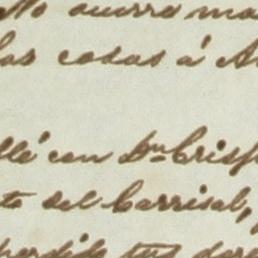 No ocurre ma
las cosas á A
llé con Dn Crisp
to del Carrisal,
perdido tus dere